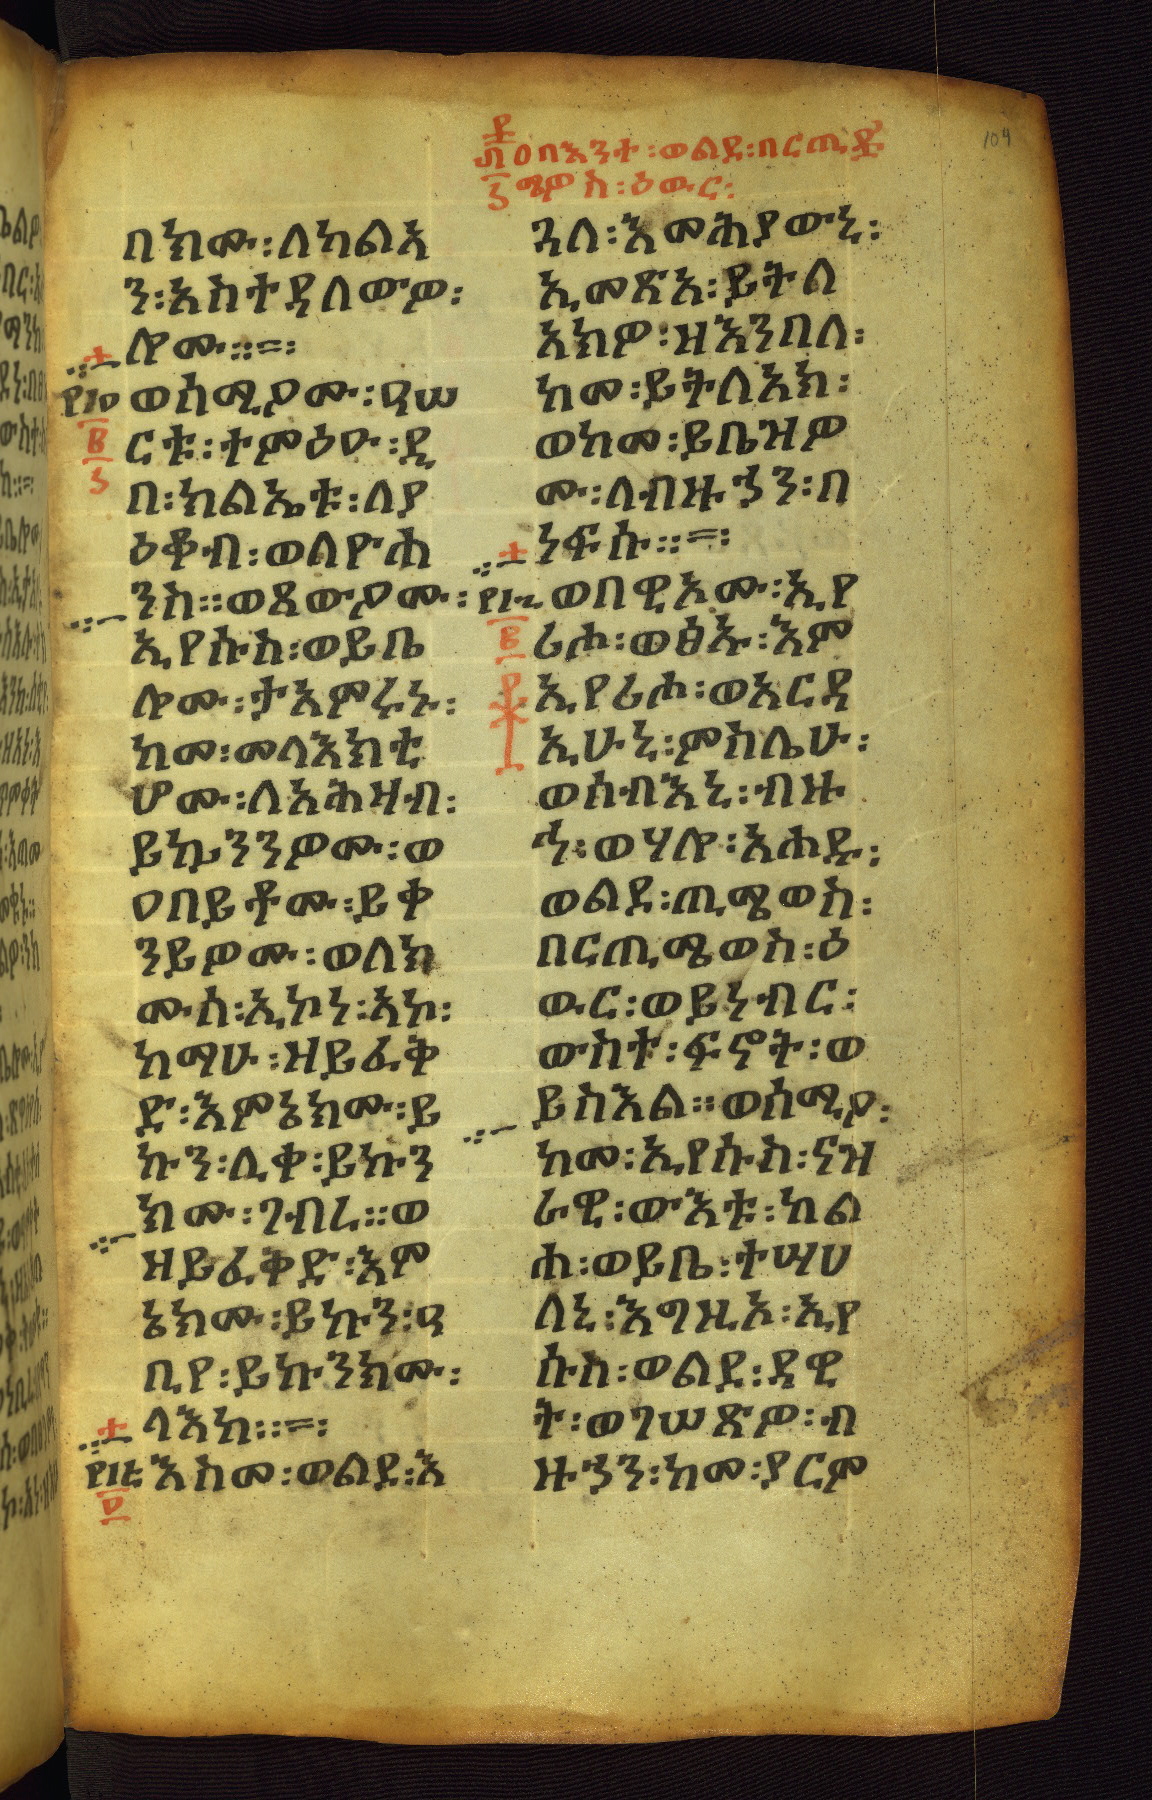 በእንተ፡ወልደ፡በርጤ
ሜዎስ፡ዕውር፡
104
በክሙ፡ለካልኣ
ን፡አስተዳለውዎ፡
ሎሙ።
ወሰሚዖሙ፡ዓሠ
ርቱ፡ተምዕዑ፡ዲ
በ፡ክልኤቱ፡ለያ
ዕቆብ፡ወለዮሐ
ንስ።ወጸውዖሙ፡
ኢየሱስ፡ወይቤ
ሎሙ፡ታአምሩኑ፡
ከመ፡መላእክቲ
ሆሙ፡ለአሕዛብ፡
ይኴንንዎሙ፡ወ
ዐበይቶሙ፡ይቀ
ንይዎሙ፡ወለክ
ሙሰ፡ኢኮነ፡አኮ፡
ከማሁ፡ዘይፈቅ
ድ፡እምኔክሙ፡ይ
ኩን፡ሊቀ፡ይኩን
ክሙ፡ገብረ።ወ
ዘይፈቅድ፡እም
ኔክሙ፡ይኩን፡ዓ
ቢየ፡ይኩንክሙ፡
ላእከ።
እስመ፡ወልደ፡እ
ጓለ፡እመሕያውኒ፡
ኢመጽአ፡ይትል
አክዎ፡ዘእንበለ፡
ከመ፡ይትለአክ፡
ወከመ፡ይቤዝዎ
ሙ፡ለብዙኃን፡በ
ነፍሱ።
ወበዊኦሙ፡ኢየ
ሪሖ፡ወፅኡ፡እም
ኢየሪሖ፡ወአርዳ
ኢሁኒ፡ምስሌሁ፡
ወሰብእኒ፡ብዙ
ኅ፡ወሃሎ፡አሐዱ፡
ወልደ፡ጢሜዎስ፡
በርጢሜዎስ፡ዕ
ውር፡ወይነብር፡
ውስተ፡ፍኖት፡ወ
ይስእል።ወሰሚዖ፡
ከመ፡ኢየሱስ፡ናዝ
ራዊ፡ውእቱ፡ከል
ሐ፡ወይቤ፡ተሣሀ
ለኒ፡እግዚኦ፡ኢየ
ሱስ፡ወልደ፡ዳዊ
ት፡ወገሠጽዎ፡ብ
ዙኃን፡ከመ፡ያርም